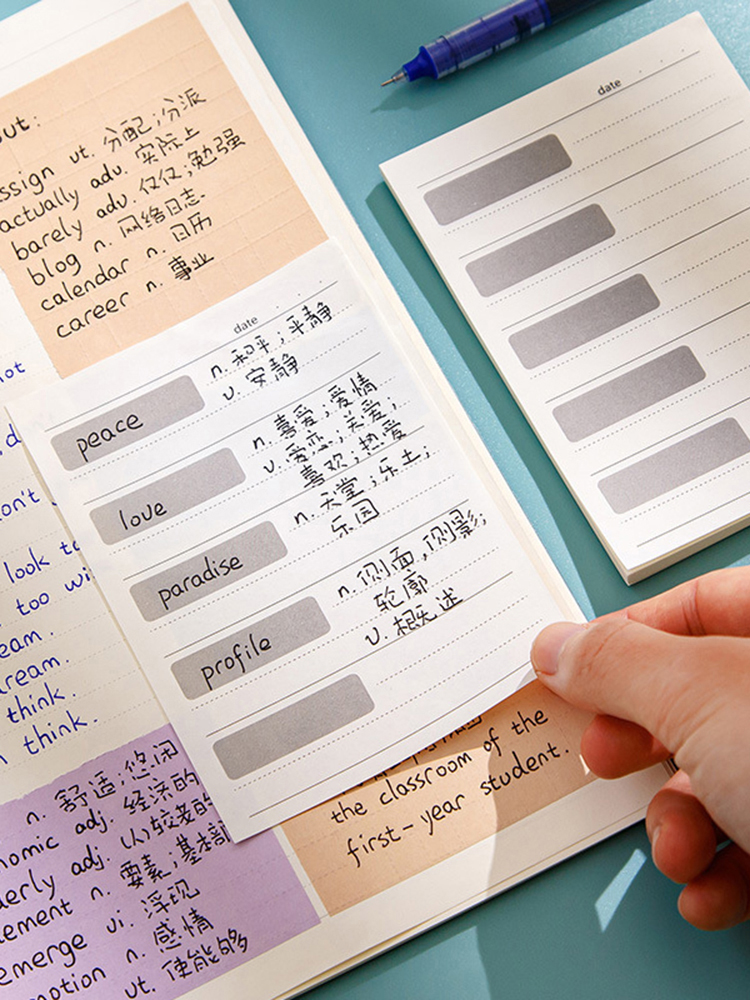 out:
ssign vt. 分配;分派
actually adv. 实际上
barely adv. 仅仅;勉强
blog n. 网络日志
calendar n. 日历
career n. 事业
date
peace n. 和平;平静
v. 安静
love n. 喜爱;爱情
v. 爱恋;关爱;
喜欢;热爱
paradise n. 天堂;乐土;
乐园
profile n. 侧面,侧影;
轮廓
v. 概述
date
not
on't
look to
too wi
eam.
ream.
think.
think.
n. 舒适;悠闲
nomic adj. 经济的
derly adj.
lement n. 要素;基本
emerge vi. 浮现
motion n. 感情
vt. 使能够
the classroom of the
first-year student.